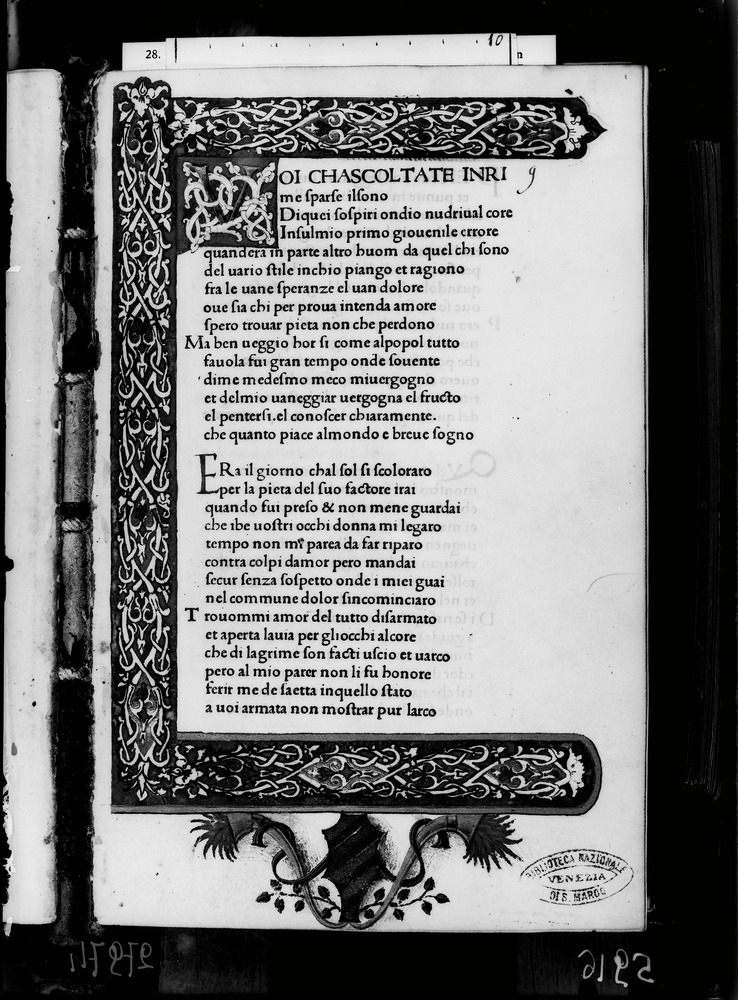 28.
10
n
9
VOI CHASCOLTATE INRI
me sparse ilsono
Diquei sospiri ondio nudriual core
Insulmio primo giouenile errore
quandera in parte altro huom da quel chi sono
del uario stile inchio piango et ragiono
fra le uane speranze el uan dolore
oue sia chi per proua intenda amore
spero trouar pieta non che perdono
Ma ben ueggio hor si come alpopol tutto
fauola fui gran tempo onde souente
dime medesmo meco miuergogno
et delmio uaneggiar uergogna el fructo
el pentersi.el conoscer chiaramente.
che quanto piace almondo e breue sogno
ERa il giorno chal sol si scoloraro
per la pieta del suo factore irai
quando fui preso & non mene guardai
che ibe uostri occhi donna mi legaro
tempo non mi parea da far riparo
contra colpi damor pero mandai
secur senza sospetto onde i miei guai
nel commune dolor sincominciaro
Trouommi amor del tutto disarmato
et aperta lauia per gliocchi alcore
che di lagrime son facti uscio et uarco
pero al mio parer non li fu honore
ferir me de saetta inquello stato
a uoi armata non mostrar pur larco
BIBLIOTECA NAZIONALE
VENEZIA
DI S. MARCO
5916